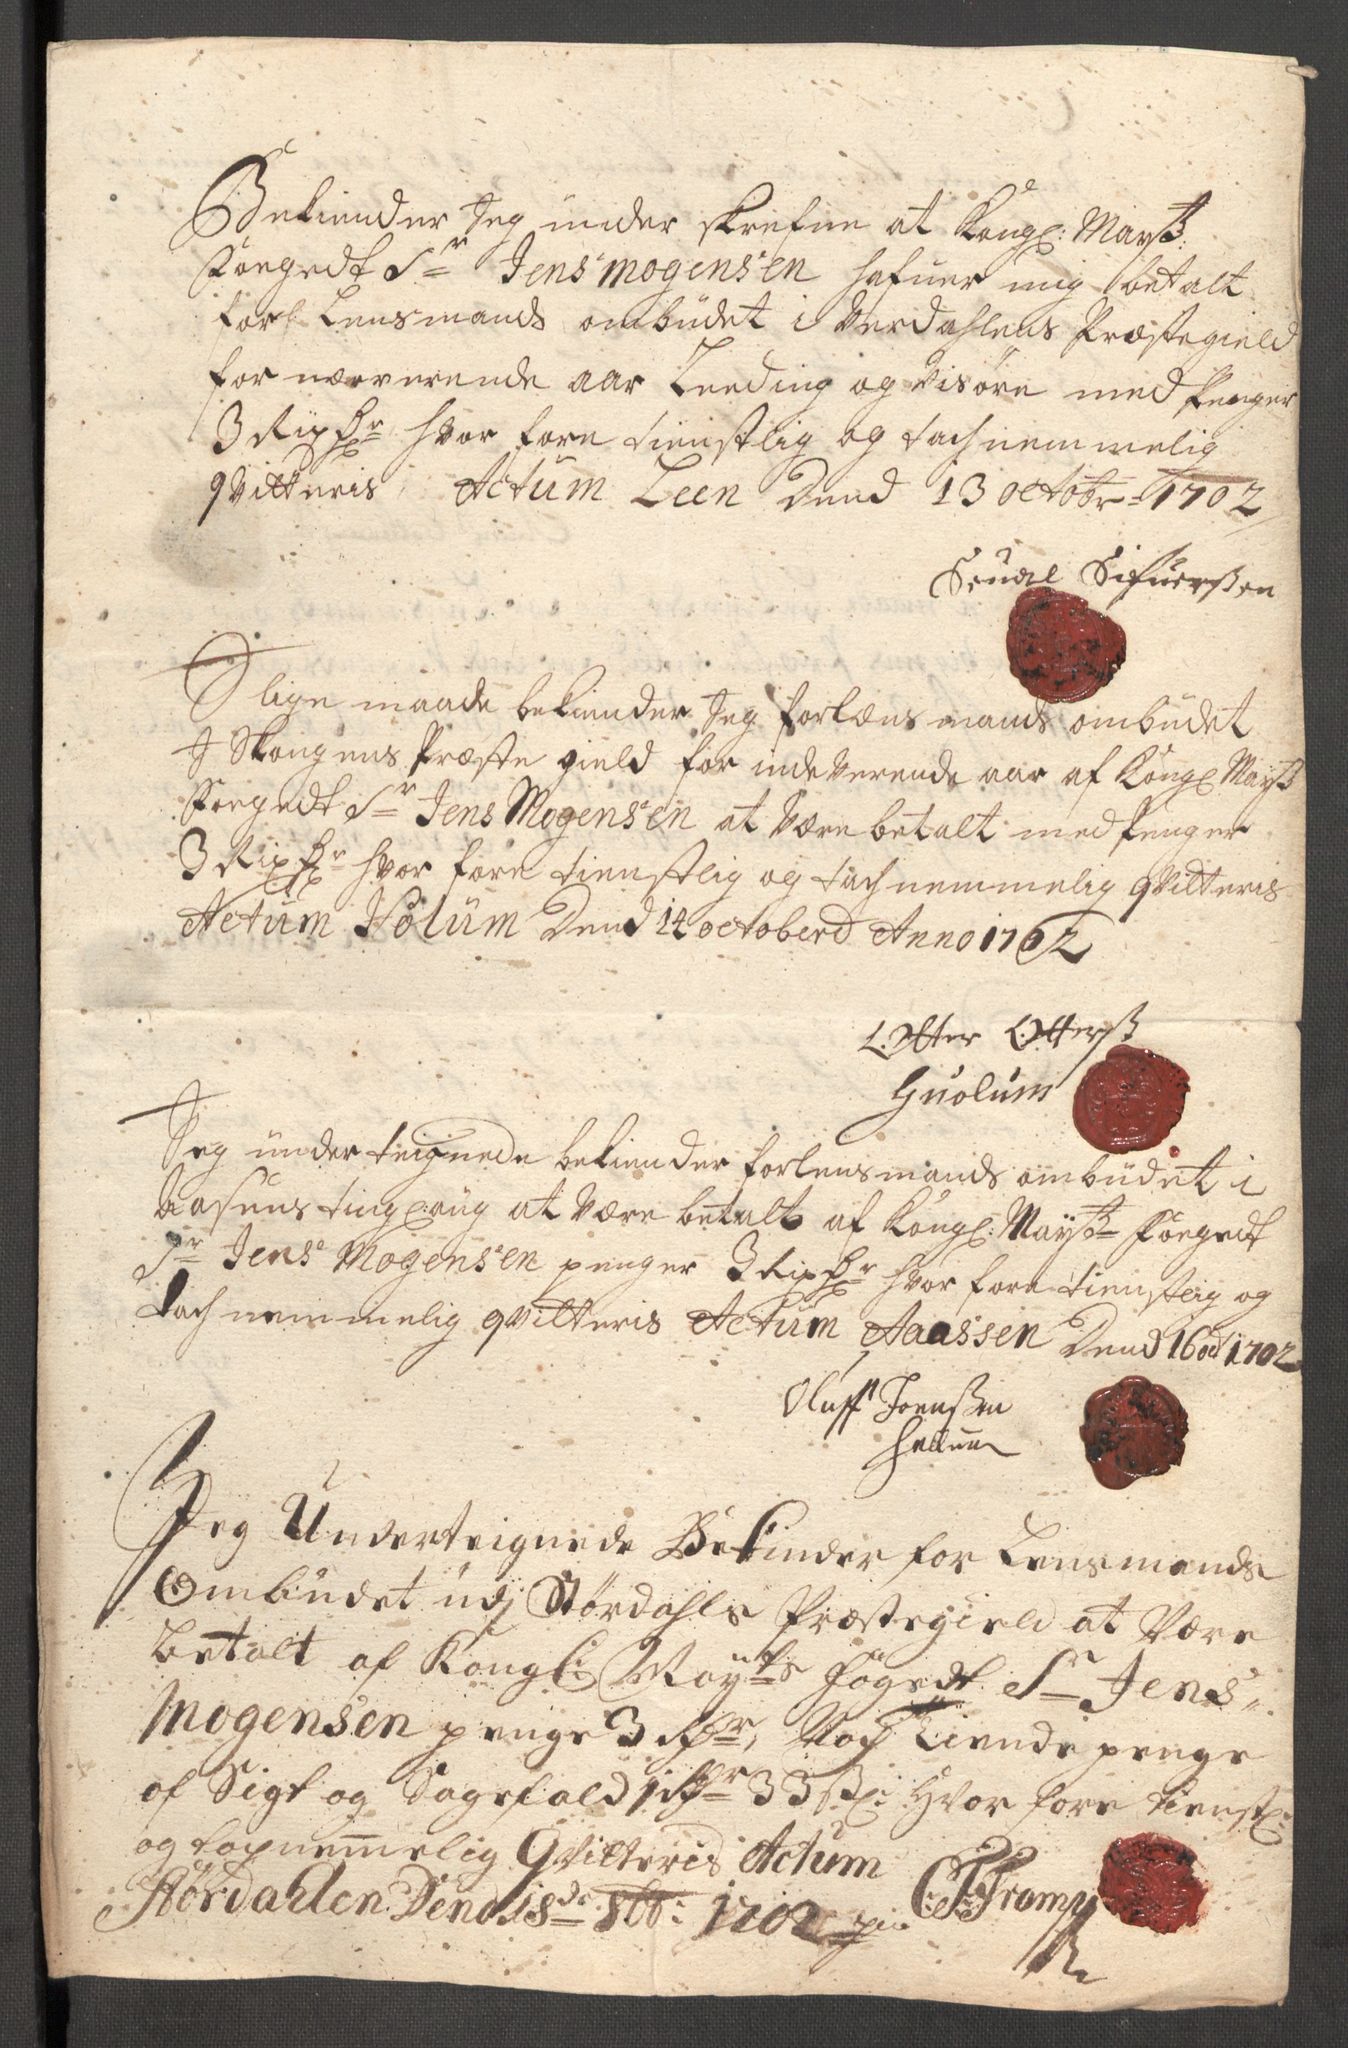 Bekiender Jeg under skrefne at Kongl: Mayst:
Foegedt Sr Jens Mogensen hafuer mig betalt
for Lensmands ombudet i Verdahlens Præstegield
for nærverende aar Leeding og Visøre med penger
3 Rixdr hvor fore tienstlig og tachnemmelig
qvitteris, Actum Leen Dend 13 octobr: 1702
Sifuerßen
J lige maade bekiender Jeg for Lænsmands ombudet
J Skongens Præste gield for indeverende aar af Kongl Mayst
Foegedt Sr Jens Mogensen at være betalt med penger
3 Rixdr hvor fore tienstlig og tachnemmelig qvitteris
Actum Holum Dend 14 octoberd Anno 1702
Otter Otterß
Huolum
Jeg under teignede bekiender for lensmands ombudet i
Aasens tingl:aug at være betalt af Kongl: Mayst Foegedt
Sr Jens Mogensen penger 3 Rixdr hvor fore tienstlig og
tachnemmelig qvitteris Actum Aaassen Dend 16 oct 1702
Oluff Joenßen

Jeg Underteignede Bekinder for Lensmands
Ombudet udj Størdahls Præstegield at Være
betalt af Kongli: Mayts fogedt Sr Jens
Mogensen penge 3 Rdr, Noch Tiende penge
af Sigt og Sagefald 1 Rdr 33 ß: Hvor fore tienstl:
og tacknemmelig Qvitteris Actum
Størdahlen Dend 18de 8bb: 1702
Tromp